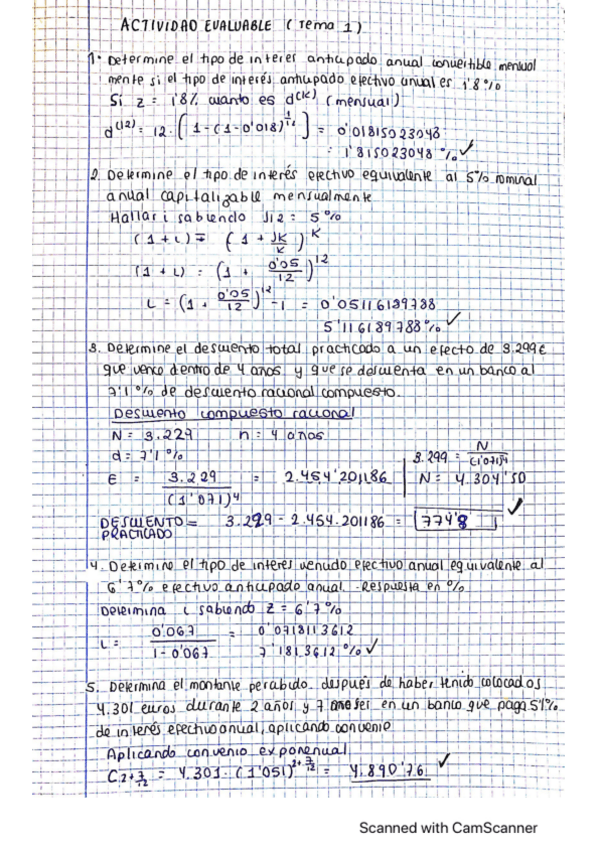 ACTIVIDAD EVALUABLE (Tema 1)
1. Determine el tipo de interer anticipado anual convertible mensual
mente si el tipo de interés anticipado efectivo anual es 1'8%
Si z = 1'8% cuanto es d(12) (mensual)
d(12) = 12 · [1-(1-0'018)^1/12] = 0'01815023048
= 1'815023048 % ✓
2. Determine el tipo de interés efectivo equivalente al 5% nominal
anual capitalizable mensualmente
Hallar i sabiendo J12 = 5%
(1+i) = (1 + JK/K)^K
(1+i) = (1 + 0'05/12)^12
i = (1 + 0'05/12)^12 -1 = 0'05116189788
5'116189788% ✓
3. Determine el descuento total practicado a un efecto de 3.299€
que vence dentro de 4 años y que se descuenta en un banco al
7'1% de descuento racional compuesto.
Descuento compuesto racional
N = 3.229 n = 4 años
d = 7'1%
3.299 = N/(1'071)4
E = 3.229/(1'071)4 = 2.454'201186
N = 4.304'50
DESCUENTO PRACTICADO = 3.229 - 2.454.201186 = 774'8 ✓
4. Determine el tipo de interes vencido efectivo anual equivalente al
6'7% efectivo anticipado anual. Respuesta en %
Determina i sabiendo z = 6'7%
i = 0'067/1-0'067 = 0'0718113612
7'1813612 % ✓
5. Determina el montante percibido después de haber tenido colocados
4.301 euros durante 2 años y 7 meses en un banco que paga 5'1%
de interés efectivo anual, aplicando convenio
Aplicando convenio exponencial
C2+7/12 = 4.301 · (1'051)^2+7/12 = 4.890'76 ✓
Scanned with CamScanner